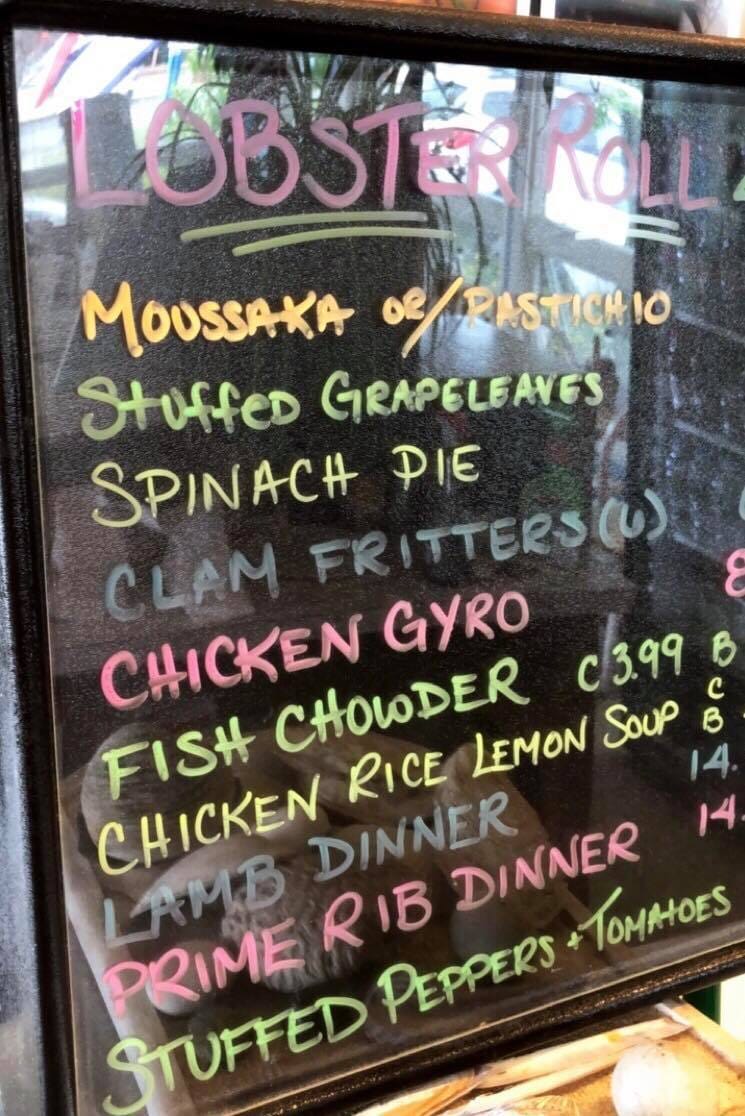 LOBSTER ROLL
MOUSSAKA OR/PASTICHIO
STUFFED GRAPELEAVES
SPINACH PIE
CLAM FRITTERS (6)
CHICKEN GYRO 8
FISH CHOWDER C 3.99 B
CHICKEN RICE LEMON SOUP C B
LAMB DINNER 14.
PRIME RIB DINNER 14.
STUFFED PEPPERS + TOMATOES